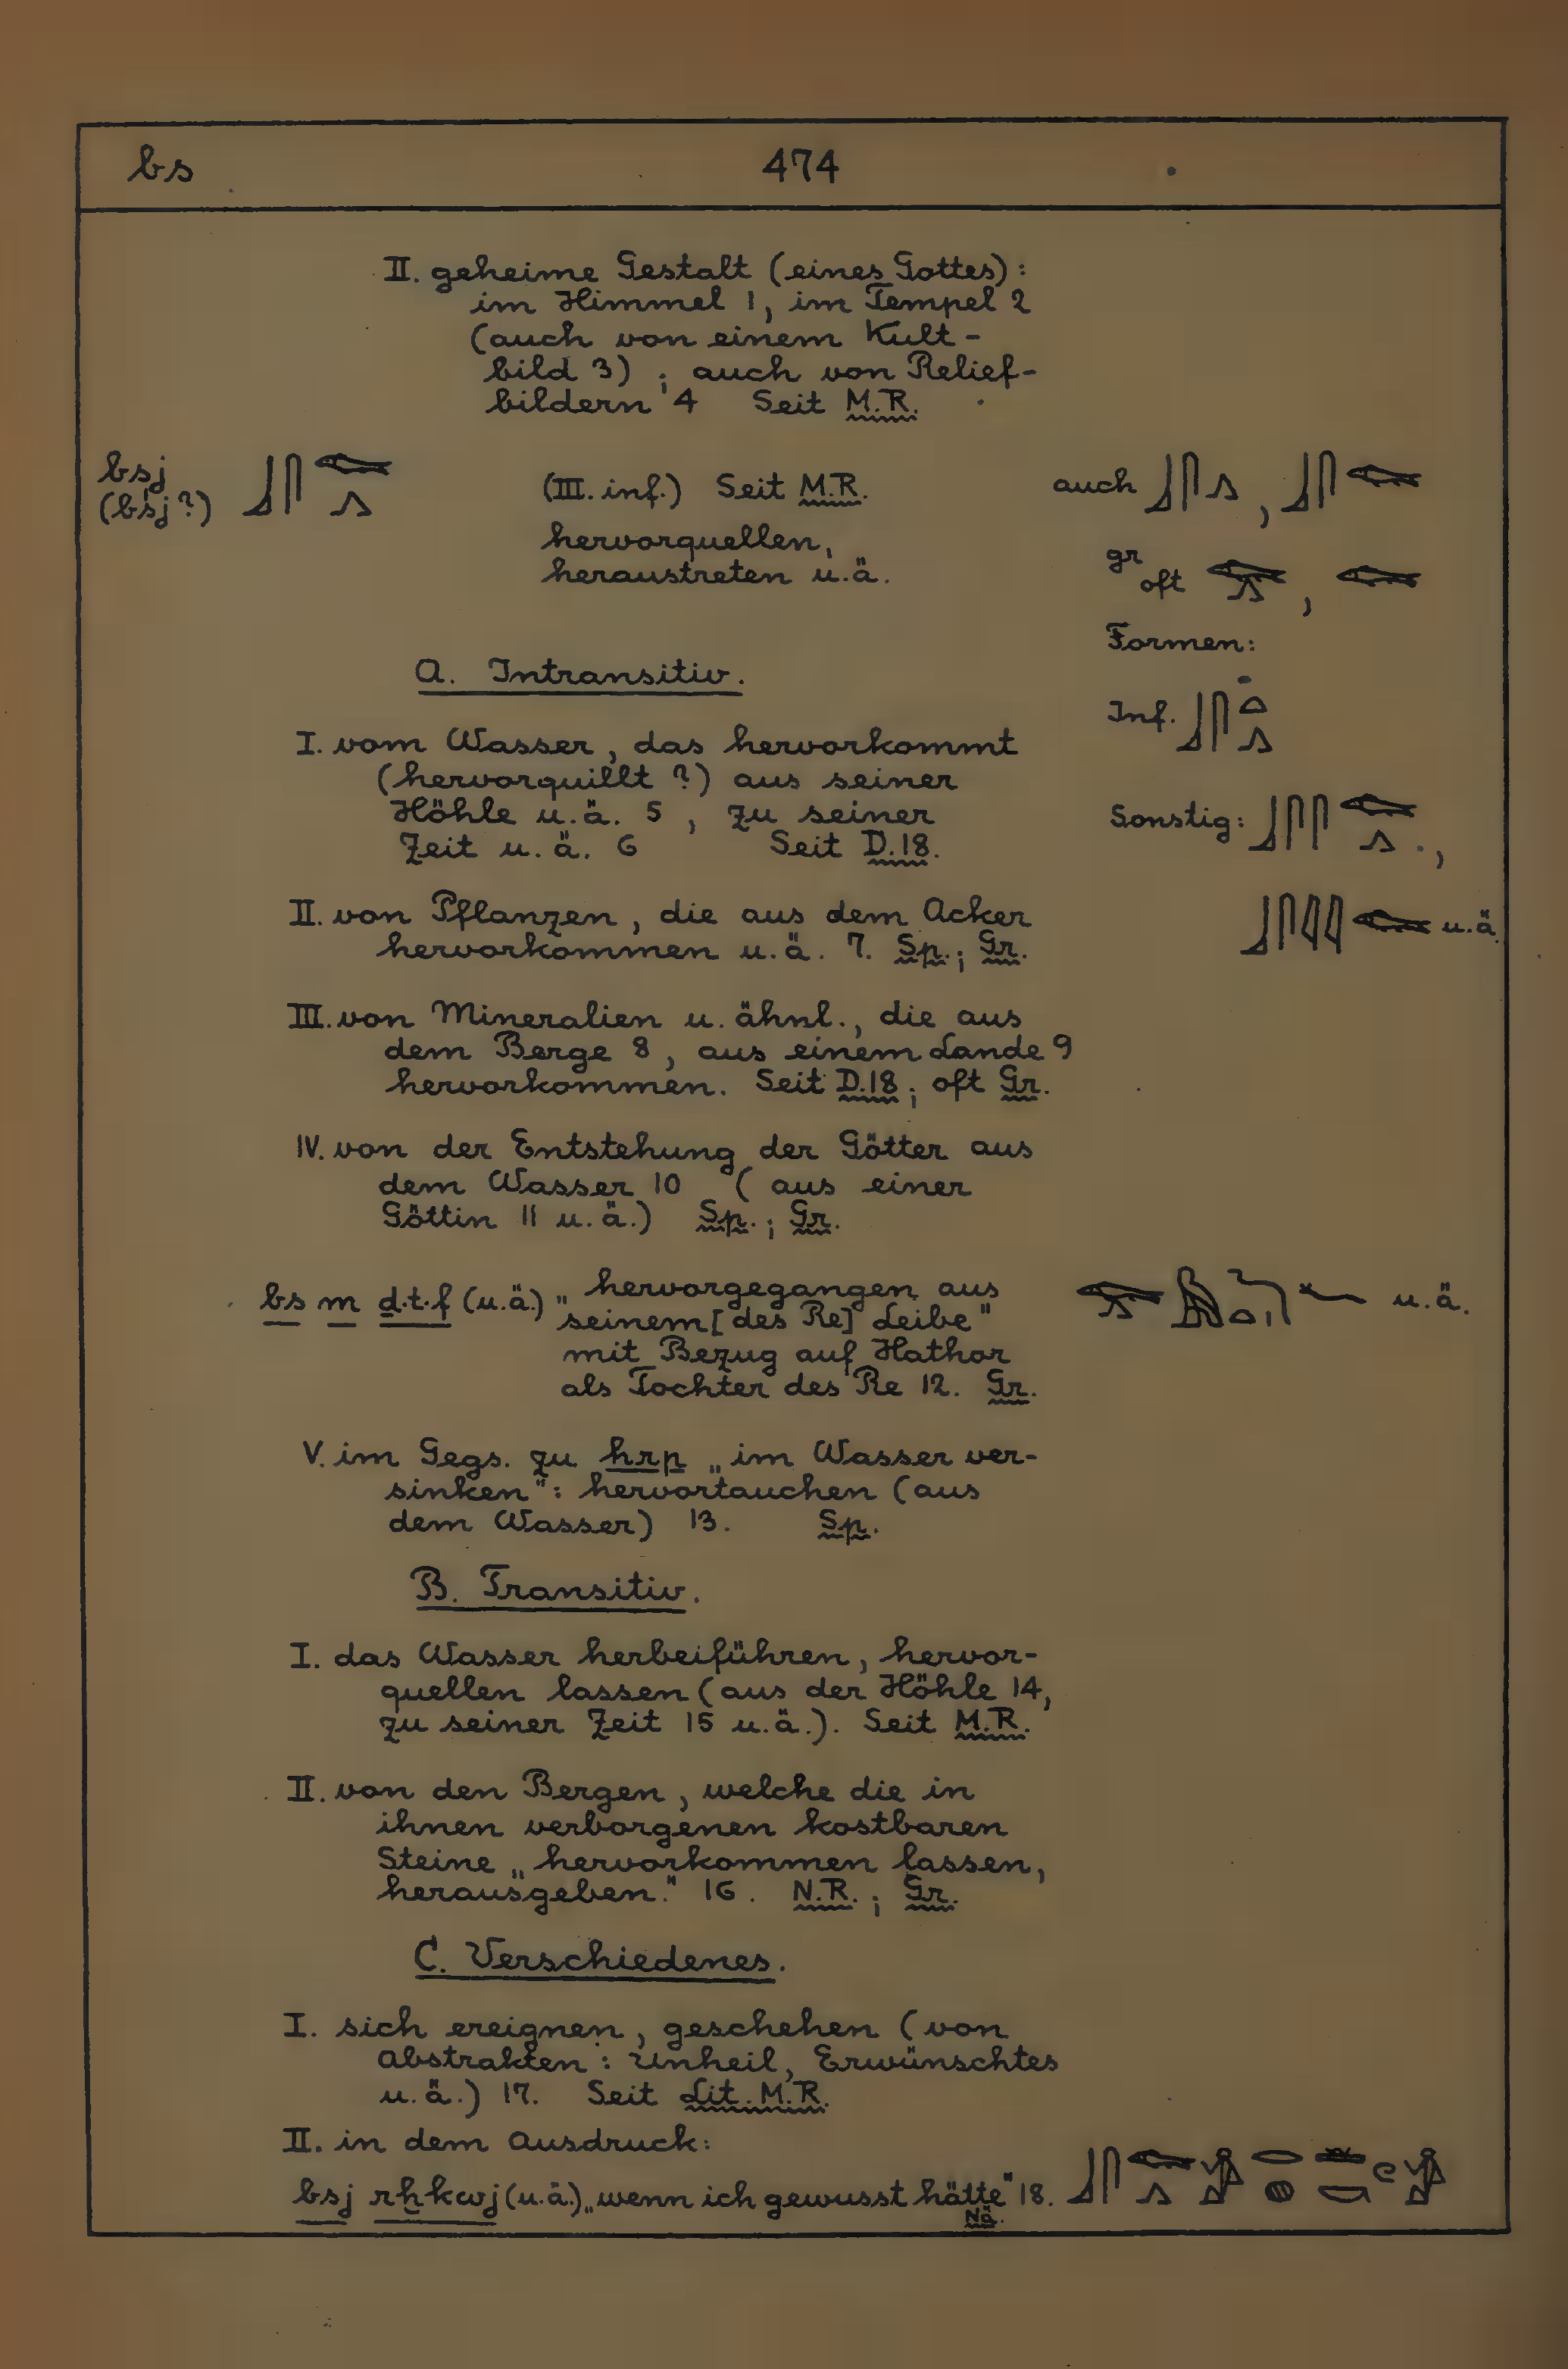 bs 474
II. geheime Gestalt (eines Gottes):
im Himmel 1, im Tempel 2
(auch von einem Kult-
bild 3) ; auch von Relief-
bildern 4 Seit M.R.
bsj
(bśj ?)
(III. inf.) Seit M.R.
hervorquellen,
heraustreten u.ä.
auch
gr
oft
Formen:
Inf.
Sonstig:
u.ä.
A. Intransitiv.
I. vom Wasser, das hervorkommt
(hervorquillt ?) aus seiner
Höhle u.ä. 5 , zu seiner
Zeit u. ä. 6 Seit D.18.
II. von Pflanzen, die aus dem Acker
hervorkommen u.ä. 7. Sp.; Gr.
III. von Mineralien u. ähnl., die aus
dem Berge 8, aus einem Lande 9
hervorkommen. Seit D.18; oft Gr.
IV. von der Entstehung der Götter aus
dem Wasser 10 (aus einer
Göttin 11 u.ä.) Sp.; Gr.
bs m ḏ.t.f (u.ä.) „hervorgegangen aus
seinem [des Re] Leibe" u.ä.
mit Bezug auf Hathor
als Tochter des Re 12. Gr.
V. im Gegs. zu hrp „im Wasser ver-
sinken": hervortauchen (aus
dem Wasser) 13. Sp.
B. Transitiv.
I. das Wasser herbeiführen, hervor-
quellen lassen (aus der Höhle 14,
zu seiner Zeit 15 u.ä.). Seit M.R.
II. von den Bergen, welche die in
ihnen verborgenen kostbaren
Steine „hervorkommen lassen,
herausgeben." 16. N.R.; Gr.
C. Verschiedenes.
I. sich ereignen, geschehen (von
Abstrakten: Unheil, Erwünschtes
u.ä.) 17. Seit Lit. M.R.
II. in dem Ausdruck:
bsj rḫkwj (u.ä.) „wenn ich gewusst hätte" 18.
Nä.